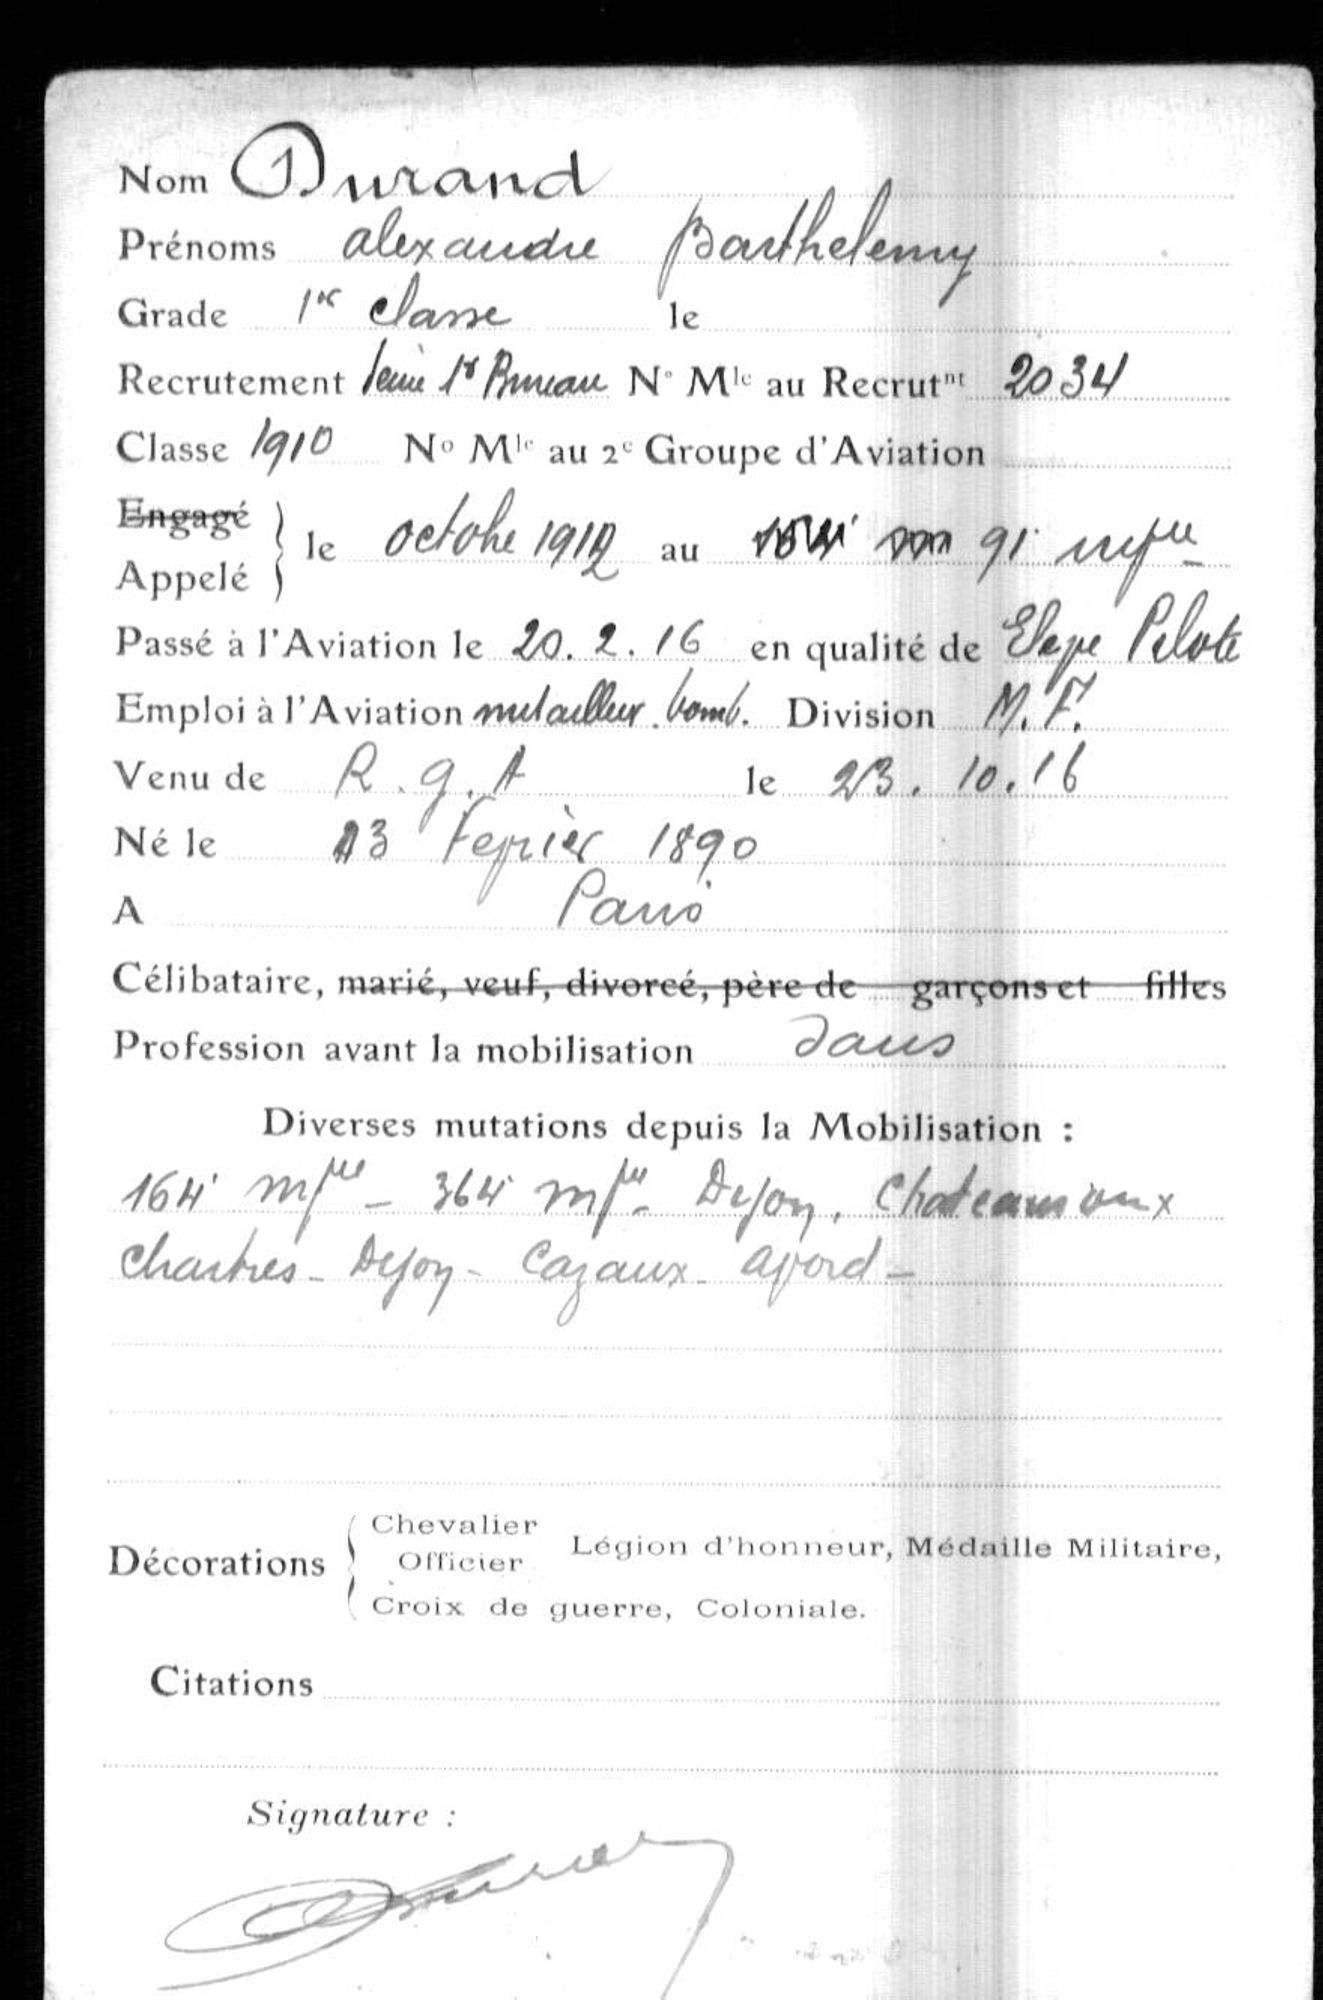 Nom Durand
Prénoms alexandre Barthelemy
Grade 1re classe le
Recrutement Seine 1r Bureau N° Mle au Recrutnt 2034
Classe 1910 No Mle au 2e Groupe d'Aviation
Engagé
Appelé } le octobre 1912 au 91e inf
Passé à l'Aviation le 20.2.16 en qualité de Eleve Pilote
Emploi à l'Aviation mitailleur.bomb. Division M.F.
Venu de R.g.A le 23.10.16
Né le 13 Fevrier 1890
A Paris
Célibataire, marié, veuf, divorcé, père de garçons et filles
Profession avant la mobilisation sans
Diverses mutations depuis la Mobilisation :
164e - 364e Dijon, Chateauroux
Chartres - Dijon - Cazaux - avord -
Décorations { Chevalier
Officier
Légion d'honneur, Médaille Militaire,
Croix de guerre, Coloniale.
Citations
Signature :